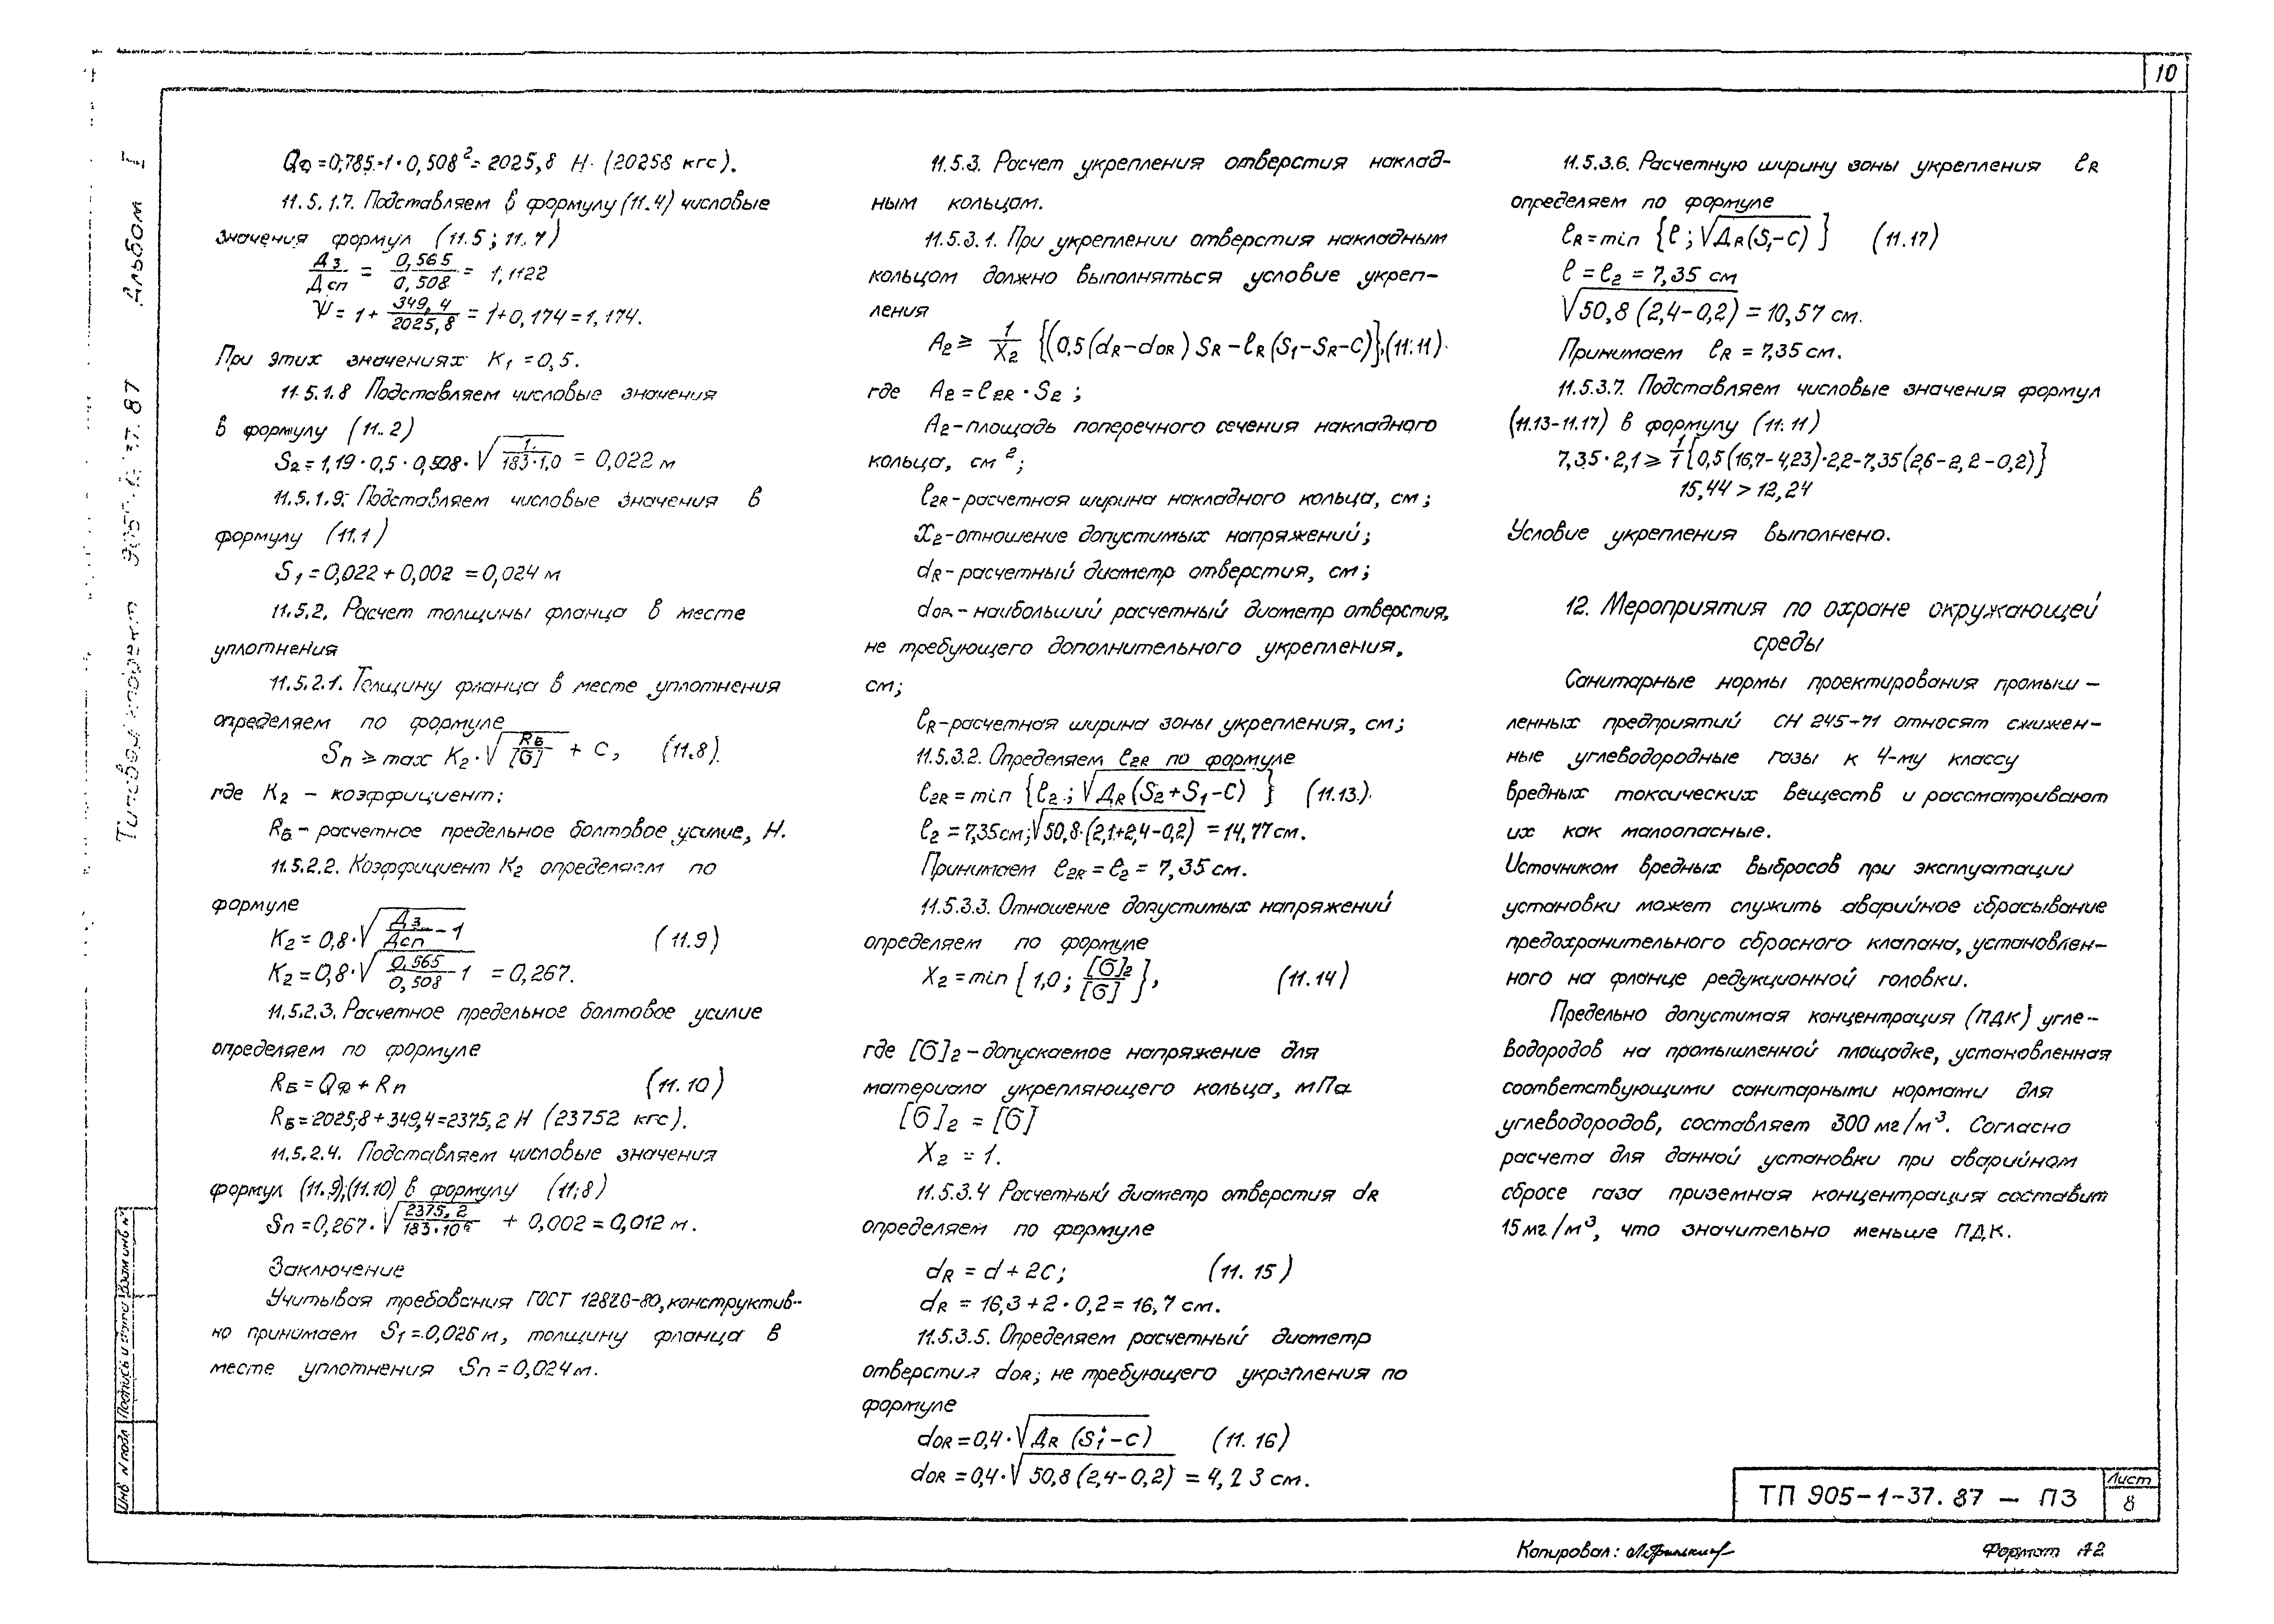 10
Альбом I
Типовой проект 905-1-37.87
Qф = 0,785·1·0,508² = 2025,8 Н (20258 кгс).
11.5.1.7. Подставляем в формулу (11.4) числовые
значения формул (11.5; 11.7)
Дз/Дсп = 0,565/0,508 = 1,1122
Ψ = 1 + 349,4/2025,8 = 1+0,174 = 1,174.
При этих значениях K₁ = 0,5.
11.5.1.8 Подставляем числовые значения
в формулу (11.2)
S₂ = 1,19·0,5·0,508·√(1/183·1,0) = 0,022 м
11.5.1.9. Подставляем числовые значения в
формулу (11.1)
S₁ = 0,022 + 0,002 = 0,024 м
11.5.2. Расчет толщины фланца в месте
уплотнения
11.5.2.1. Толщину фланца в месте уплотнения
определяем по формуле
Sп ≥ max K₂·√(Rб/[σ]) + C, (11.8)
где K₂ – коэффициент;
Rб – расчетное предельное болтовое усилие, Н.
11.5.2.2. Коэффициент K₂ определяем по
формуле
K₂ = 0,8·√(Дз/Дсп - 1) (11.9)
K₂ = 0,8·√(0,565/0,508 - 1) = 0,267.
11.5.2.3. Расчетное предельное болтовое усилие
определяем по формуле
Rб = Qф + Rп (11.10)
Rб = 2025,8 + 349,4 = 2375,2 Н (23752 кгс).
11.5.2.4. Подставляем числовые значения
формул (11.9);(11.10) в формулу (11.8)
Sп = 0,267·√(2375,2/183·10⁵) + 0,002 = 0,012 м.
Заключение
Учитывая требования ГОСТ 12820-80, конструктив-
но принимаем S₁ = 0,026 м, толщину фланца в
месте уплотнения Sп = 0,024 м.
11.5.3. Расчет укрепления отверстия наклад-
ным кольцом.
11.5.3.1. При укреплении отверстия накладным
кольцом должно выполняться условие укреп-
ления
A₂ ≥ 1/X₂ {(0,5(dR-dOR)SR-ℓR(S₁-SR-C)},(11.11)
где A₂ = ℓ2R · S₂;
A₂-площадь поперечного сечения накладного
кольца, см²;
ℓ2R-расчетная ширина накладного кольца, см;
X₂-отношение допустимых напряжений;
dR-расчетный диаметр отверстия, см;
dOR-наибольший расчетный диаметр отверстия,
не требующего дополнительного укрепления,
см;
ℓR-расчетная ширина зоны укрепления, см;
11.5.3.2. Определяем ℓ2R по формуле
ℓ2R = min {ℓ₂; √ДR(S₂+S₁-C) } (11.13.)
ℓ₂ = 7,35см; √50,8·(2,1+2,4-0,2) = 14,77 см.
Принимаем ℓ2R = ℓ₂ = 7,35 см.
11.5.3.3. Отношение допустимых напряжений
определяем по формуле
X₂ = min { 1,0; [σ]₂/[σ] }, (11.14)
где [σ]₂ – допускаемое напряжение для
материала укрепляющего кольца, мПа
[σ]₂ = [σ]
X₂ = 1.
11.5.3.4 Расчетный диаметр отверстия dR
определяем по формуле
dR = d + 2C; (11.15)
dR = 16,3 + 2·0,2 = 16,7 см.
11.5.3.5. Определяем расчетный диаметр
отверстия dOR; не требующего укрепления по
формуле
dOR = 0,4·√ДR (S₁-C) (11.16)
dOR = 0,4·√50,8(2,4-0,2) = 4,23 см.
11.5.3.6. Расчетную ширину зоны укрепления ℓR
определяем по формуле
ℓR = min {ℓ; √ДR(S₁-C) } (11.17)
ℓ = ℓ₂ = 7,35 см
√50,8(2,4-0,2) = 10,57 см.
Принимаем ℓR = 7,35 см.
11.5.3.7. Подставляем числовые значения формул
(11.13-11.17) в формулу (11.11)
7,35·2,1 ≥ 1/1{0,5(16,7-4,23)·2,2-7,35(2,6-2,2-0,2)}
15,44 > 12,24
Условие укрепления выполнено.
12. Мероприятия по охране окружающей
среды
Санитарные нормы проектирования промыш-
ленных предприятий СН 245-71 относят сжижен-
ные углеводородные газы к 4-му классу
вредных токсических веществ и рассматривают
их как малоопасные.
Источником вредных выбросов при эксплуатации
установки может служить аварийное сбрасывание
предохранительного сбросного клапана, установлен-
ного на фланце редукционной головки.
Предельно допустимая концентрация (ПДК) угле-
водородов на промышленной площадке, установленная
соответствующими санитарными нормами для
углеводородов, составляет 300 мг/м³. Согласно
расчета для данной установки при аварийном
сбросе газа приземная концентрация составит
15 мг/м³, что значительно меньше ПДК.
Инв N подл Подпись и дата Взам инв N
ТП 905-1-37.87 – ПЗ
Лист
8
Копировал:
Формат А2